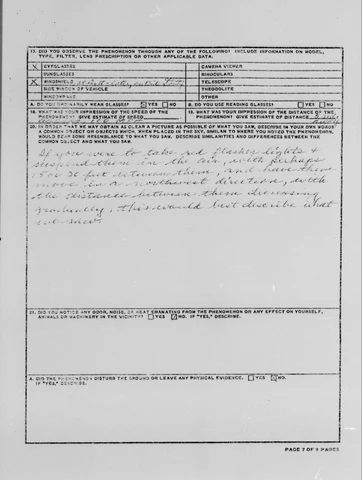 17. DID YOU OBSERVE THE PHENOMENON THROUGH ANY OF THE FOLLOWING? INCLUDE INFORMATION ON MODEL, TYPE, FILTER, LENS PRESCRIPTION OR OTHER APPLICABLE DATA.
X EYEGLASSES CAMERA VIEWER
SUNGLASSES BINOCULARS
X WINDSHIELD TELESCOPE
SIDE WINDOW OF VEHICLE THEODOLITE
WINDOWPANE OTHER
A. DO YOU ORDINARILY WEAR GLASSES? YES NO B. DO YOU USE READING GLASSES? YES NO
18. WHAT WAS YOUR IMPRESSION OF THE SPEED OF THE PHENOMENON? GIVE ESTIMATE OF SPEED
19. WHAT WAS YOUR IMPRESSION OF THE DISTANCE OF THE PHENOMENON? GIVE ESTIMATE OF DISTANCE
20. IN ORDER THAT WE MAY OBTAIN AS CLEAR A PICTURE AS POSSIBLE OF WHAT YOU SAW, DESCRIBE IN YOUR OWN WORDS A COMMON OBJECT OR OBJECTS WHICH, WHEN PLACED IN THE SKY, SIMILAR TO WHERE YOU NOTED THE PHENOMENON, WOULD BEAR SOME RESEMBLANCE TO WHAT YOU SAW. DESCRIBE SIMILARITIES AND DIFFERENCES BETWEEN THE COMMON OBJECT AND WHAT YOU SAW.
If you were to take red flasher lights &
suspend them in the air, with perhaps
15 or 20 feet between them, and have them
move in a northwest direction, with
the distance between them increasing
gradually, this would best describe what
we saw.
21. DID YOU NOTICE ANY ODOR, NOISE, OR HEAT EMANATING FROM THE PHENOMENON OR ANY EFFECT ON YOURSELF, ANIMALS OR MACHINERY IN THE VICINITY? YES NO. IF "YES," DESCRIBE.
A. DID THE PHENOMENON DISTURB THE GROUND OR LEAVE ANY PHYSICAL EVIDENCE. YES NO. IF "YES," DESCRIBE.
PAGE 7 OF 9 PAGES